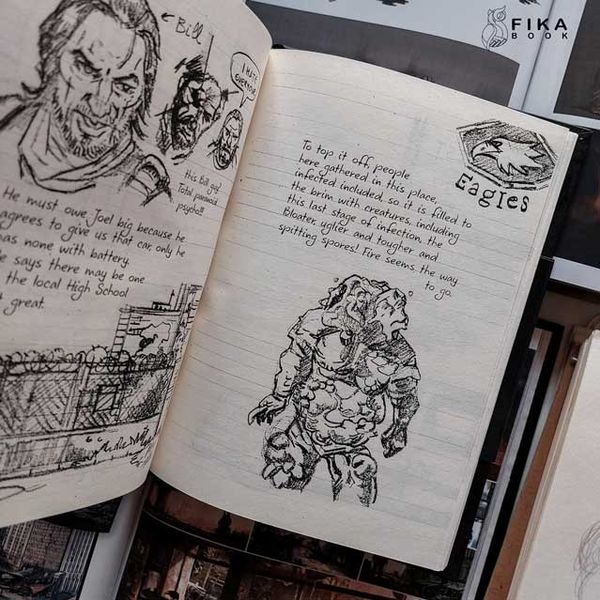 Bill
I HATE
EVERYONE
this Bill guy!
Total paranoid
psycho!!!
He must owe Joel big because he
agrees to give us that car, only he
has none with battery.
says there may be one
the local High School
great.
FIKA
BOOK
Eagles
To top it off, people
here gathered in this place,
infected included, so it is filled to
the brim with creatures, including
this last stage of infection, the
Bloater, uglier and tougher and
spitting spores! Fire seems the way
to go.